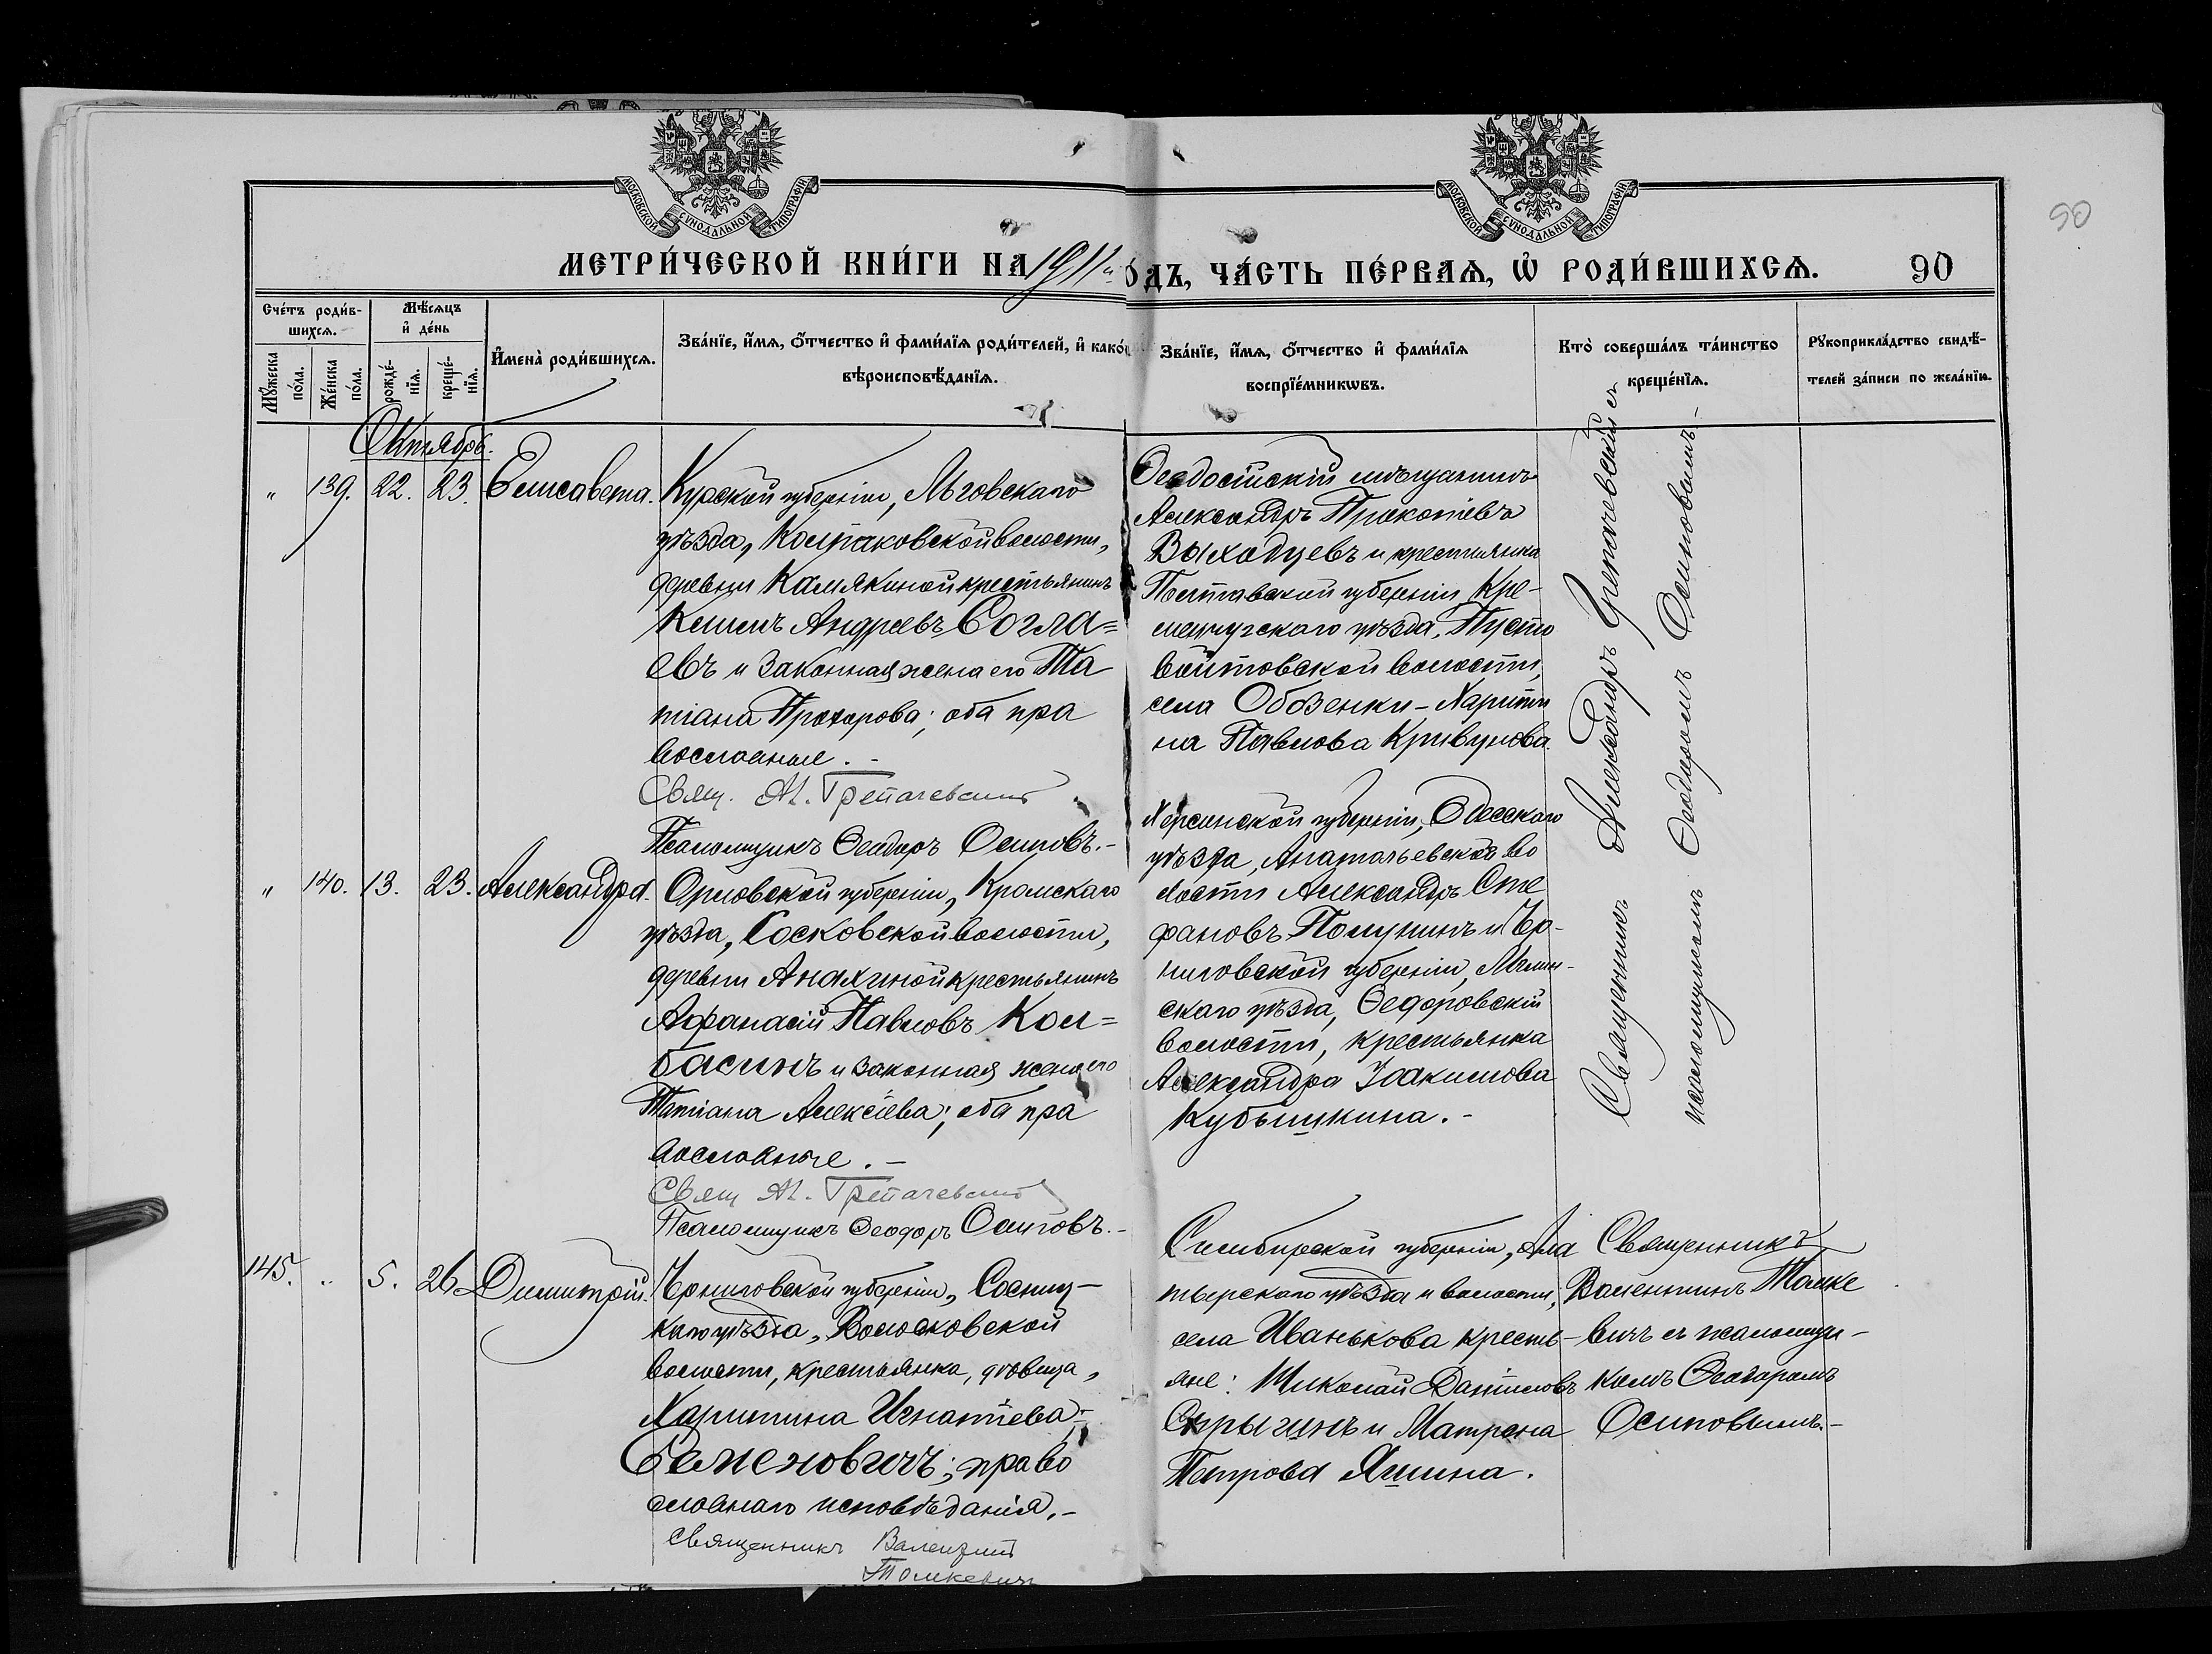 МОСКОВСКОЙ СѴНОДАЛЬНОЙ ТИПОГРАФІИ
МОСКОВСКОЙ СѴНОДАЛЬНОЙ ТИПОГРАФІИ
90
МЕТРИ́ЧЕСКОЙ КНИ́ГИ НА 1911й
О́ДЪ, ЧА́СТЬ ПЕ́РВАѦ, Ѡ҆ РОДИ́ВШИХСѦ. 90
Сче́тъ роди́в-
шихсѧ.
Мѹ́жеска
по́ла.
Же́нска
по́ла.
Мѣ́сѧцъ
и҆ де́нь
рожде́-
нїѧ.
креще́-
нїѧ.
И҆мена̀ роди́вшихсѧ.
Зва́нїе, и҆́мѧ, ѻ҆́тчество и҆ фами́лїѧ роди́телей, и҆ како́
вѣроисповѣ́данїѧ.
Зва́нїе, и҆́мѧ, ѻ҆́тчество и҆ фами́лїѧ
воспрїе́мникѡвъ.
Кто̀ соверша́лъ та́инство
креще́нїѧ.
Рѹкоприкла́дство свидѣ́-
телей за́писи по жела́нїю.
Октябрь.
" 139. 22. 23. Елисавета.
Курской губерніи, Льговскаго
уѣзда, Колпаковской волости,
деревни Камякиной крестьянинъ
Климъ Андреевъ Согла=
евъ и законная жена его Та
тіана Прохорова; оба пра
вославные. -
Свящ. Ал. Грепачевскій
Псаломщикъ Ѳеодоръ Осиповъ. -
Ѳеодосійскій мѣщанинъ
Александръ Прокопіевъ
Выходцевъ и крестьянка
Полтавской губерніи Кре-
менчугскаго уѣзда, Пусто
войтовской волости,
села Обозенки - Харити
на Павлова Кривунова
Священникъ Александръ Грепачевскій съ
псаломщикомъ Ѳеодоромъ Осиповымъ. -
" 140. 13. 23. Александра.
Орловской губерніи, Кромскаго
уѣзда, Сосковской волости,
деревни Анахиной крестьянинъ
Афанасій Павловъ Кол=
басинъ и законная жена его
Татіана Алексіева; оба пра
вославные. -
Свящ Ал. Грепачевскій
Псаломщикъ Ѳеодоръ Осиповъ. -
Херсонской губерніи, Одесскаго
уѣзда, Анатольевской во
лости Александръ Сте
фановъ Полунинъ и Чер-
ниговской губерніи, Мглин-
скаго уѣзда, Ѳедоровскій
волости, крестьянка
Александра Іоакимова
Кубышкина. -
145. " 5. 26 Димитрій.
Черниговской губерніи, Сосниц-
каго уѣзда, Волосковской
волости, крестьянка, дѣвица,
Харитина Игнатіева
Семеновичъ; право
славнаго исповѣданія. -
Священникъ Валентинъ
Томкевичъ
Симбирской губерніи, Ала
тырскаго уѣзда и волости,
села Иванькова кресть-
яне: Николай Даніиловъ
Сырыгинъ и Матрона
Петрова Яшина.
Священникъ
Валентинъ Томке
вичъ съ псаломщи-
комъ Ѳеодоромъ
Осиповымъ. -